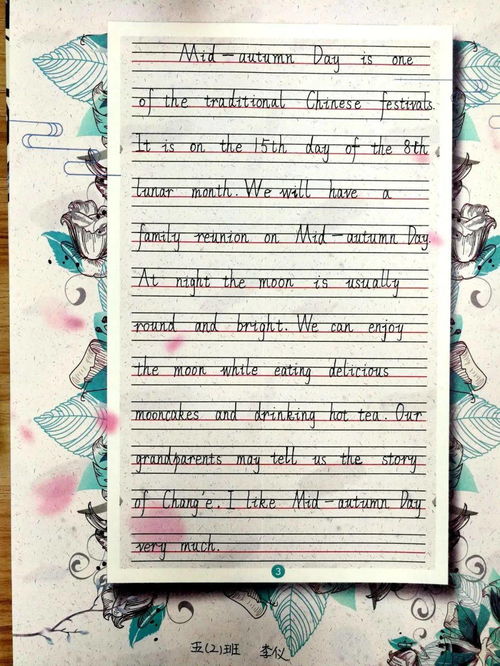 Mid-autumn Day is one
of the traditional Chinese festivals.
It is on the 15th day of the 8th
lunar month. We will have a
family reunion on Mid-autumn Day.
At night the moon is usually
round and bright. We can enjoy
the moon while eating delicious
mooncakes and drinking hot tea. Our
grandparents may tell us the story
of Chang'e. I like Mid-autumn Day
very much.
3
五(2)班 李仪